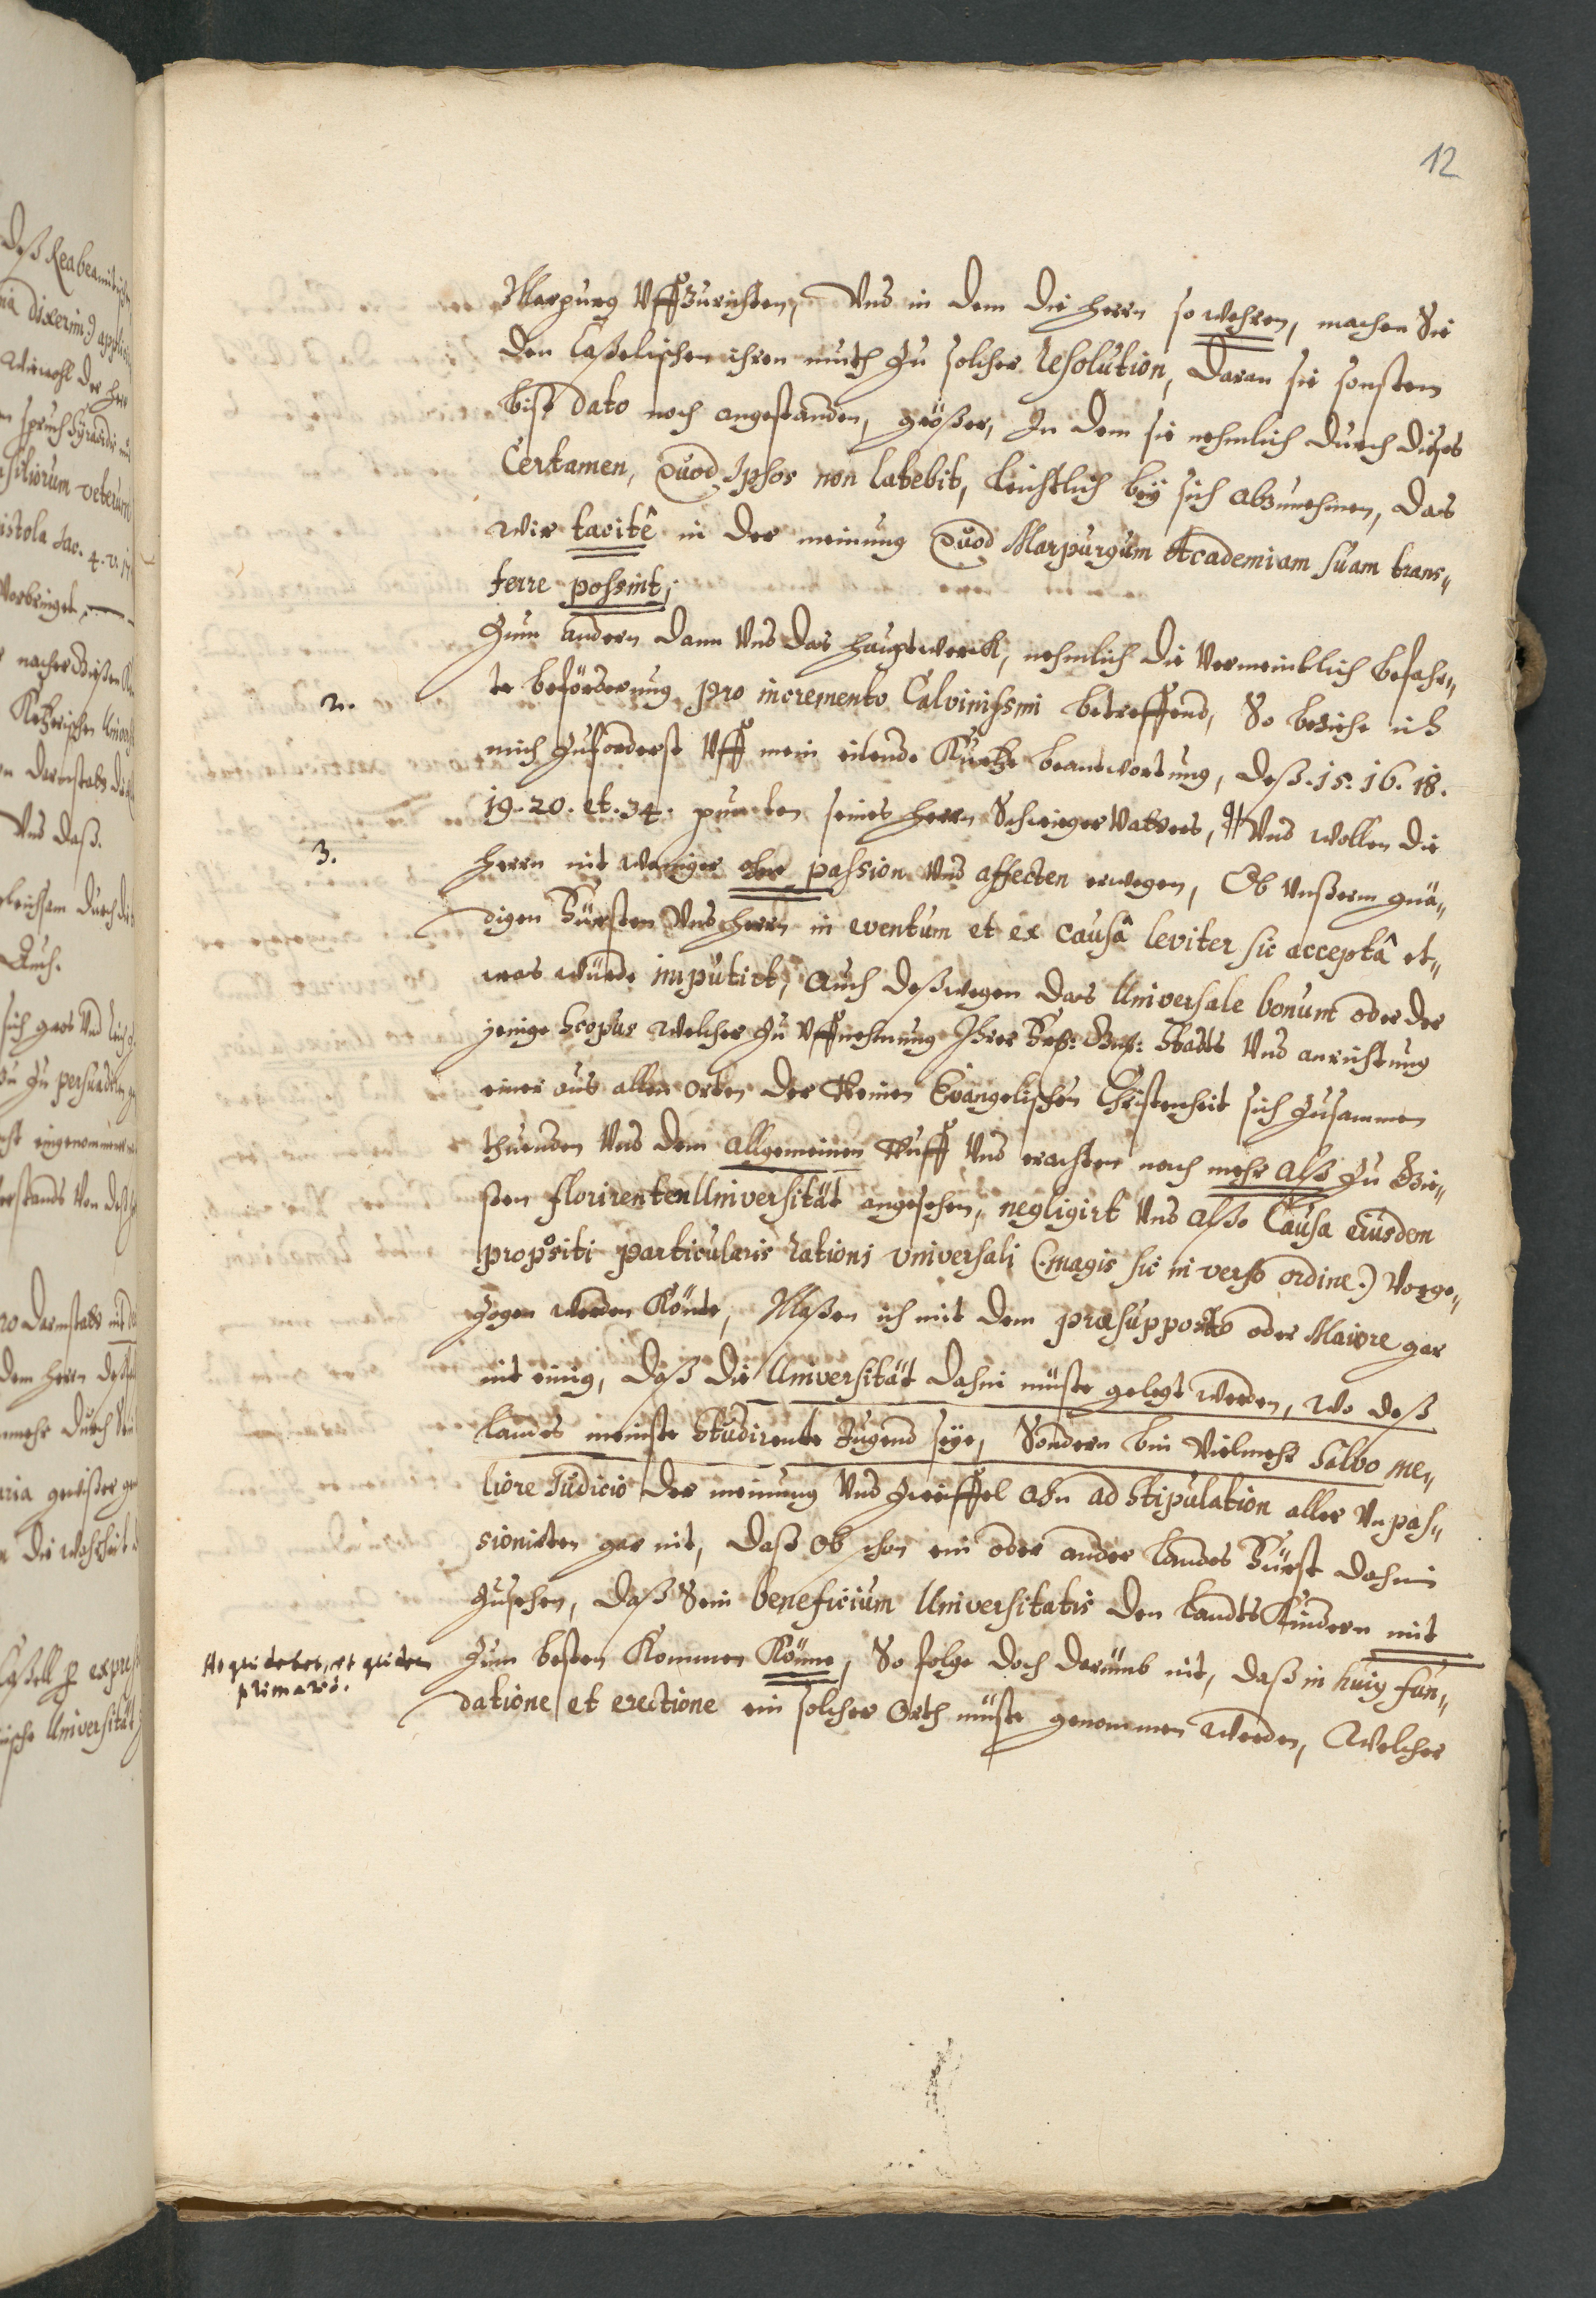 12
Marpurg Uffzurichten, Und in dem die herrn so wehren, machen Sie
den Caßelischen ihren muth zu solcher resolution, daran sie sonsten
biß dato noch angestanden, größer, In dem sie nehmlich durch dießes
Certamen, Quod Ipsos non latebit, leichtlich bey sich abzunehmen, das
wir tacitê in der meinung Quod Marpurgum Academiam suam trans„
ferre possint;
Zum andern dann Und das hauptwerck, nehmlich die vermeintlich befahr„
2.
te beförderung pro incremento Calvinissmi betreffend, So beziehe ich
mich zuforderst Uff mein eilende Kurtze beantwortung, deß. 15. 16. 18.
19. 20. et. 34. puncten seines herrn Schwiegervatters, Und wollen die
3.
herrn nit weniger ohn passion Und affecten erwegen, Ob Unßerm gnä„
digen Fürsten Und herrn in eventum et ex causâ leviter sic acceptâ et„
was würde imputirt, Auch deßwegen das Universale bonum oder der
jenige Scopus welcher zu Uffnehmung Ihrer Frh: Gnd: Stadts Und anrichtung
einer aus allen orten der Reinen Evangelischen Christenheit sich zusammen
thuenden Und dem allgemeinen Ruff Und erachten nach mehr alß zu Gie„
ßen florirenten Universität angesehen, negligirt Und alßo Causa eiusdem
propositi particularis rationi universali (magis sic inverso ordine.) Vorge„
zogen werden Könte, Maßen ich mit dem præsupposito oder Maiore gar
nit einig, daß die Universität dahin müste gelegt werden, wo deß
landes meinste Studirente Jugend seye, Sondern bin Vielmehr Salvo me„
liore Iudicio der meinung Und zweiffel ahn adstipulation aller Unpas„
sionirten gar nit, daß ob schon ein oder ander landes Fürst dahin
zusehen, daß Sein beneficium Universitatis den landtsKindern mit
At qui debet, et quidem
primariò.
Zum besten Kommen Könne, So folge doch darumb nit, daß in huius fun„
datione et erectione ein solcher Orth müste genommen werden, Welcher